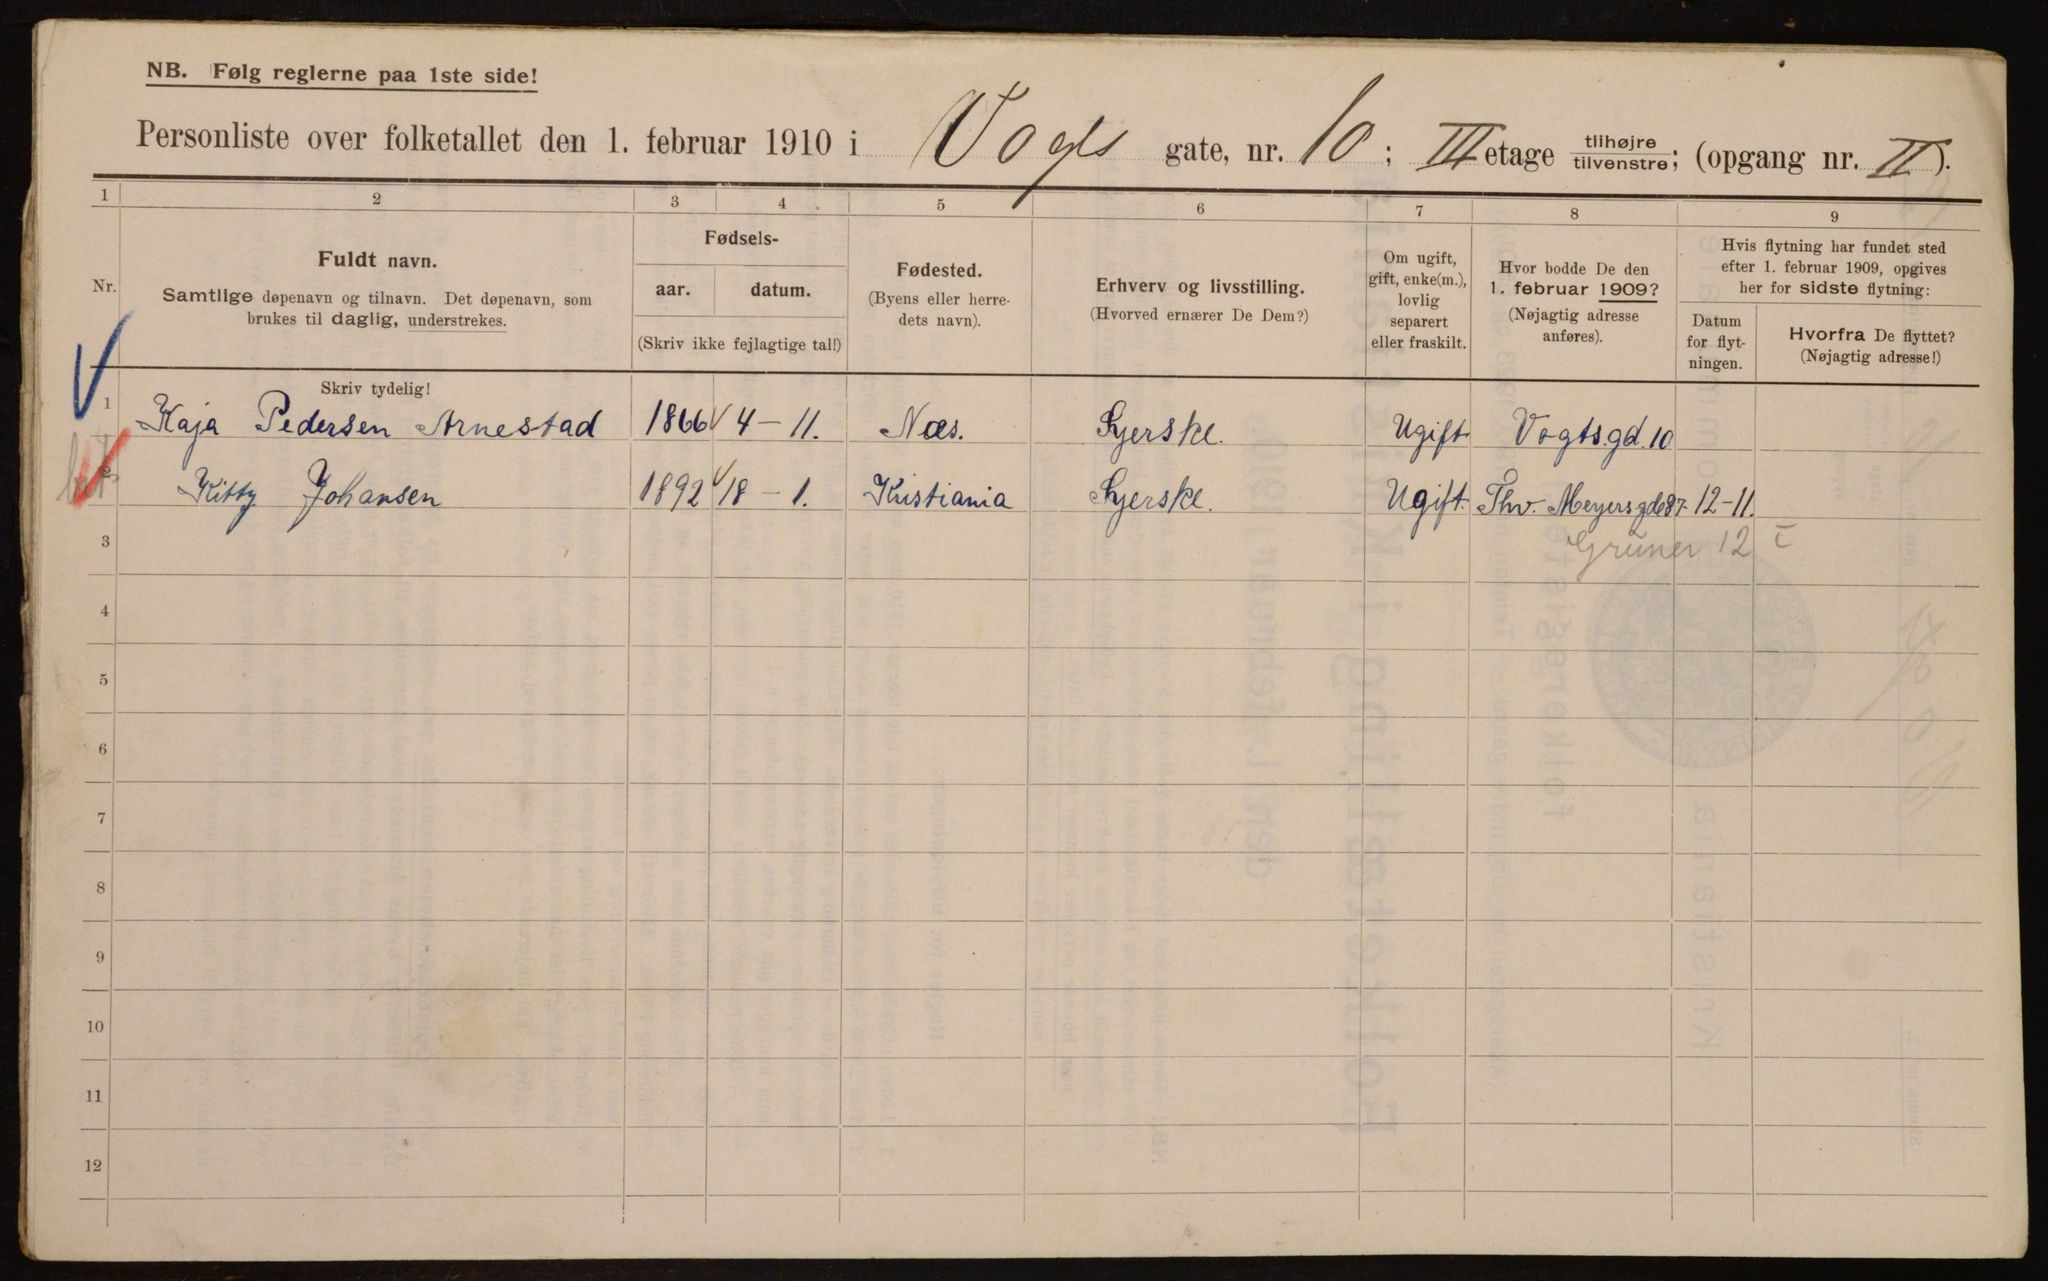 NB. Følg reglerne paa 1ste side!
Personliste over folketallet den 1. februar 1910 i Vogts gate, nr. 10; III etage tilhøjre tilvenstre; (opgang nr. II).
1 2 3 4 5 6 7 8 9
Nr.
Fuldt navn.
Samtlige døpenavn og tilnavn. Det døpenavn, som
brukes til daglig, understrekes.
Skriv tydelig!
Fødsels-
aar. datum.
(Skriv ikke fejlagtige tal!)
Fødested.
(Byens eller herre-
dets navn).
Erhverv og livsstilling.
(Hvorved ernærer De Dem?)
Om ugift,
gift, enke(m.),
lovlig
separert
eller fraskilt.
Hvor bodde De den
1. februar 1909?
(Nøjagtig adresse
anføres).
Hvis flytning har fundet sted
efter 1. februar 1909, opgives
her for sidste flytning:
Datum
for flyt-
ningen.
Hvorfra De flyttet?
(Nøjagtig adresse!)
1 Kaja Pedersen Arnestad 1866 4-11. Næs. Syerske. Ugift Vogtsgd. 10
2 Kitty Johansen 1892 18-1. Kristiania Syerske. Ugift. Thv. Meyersgd 87. 12-11.
3 Grüner 12 I
4
5
6
7
8
9
10
11
12